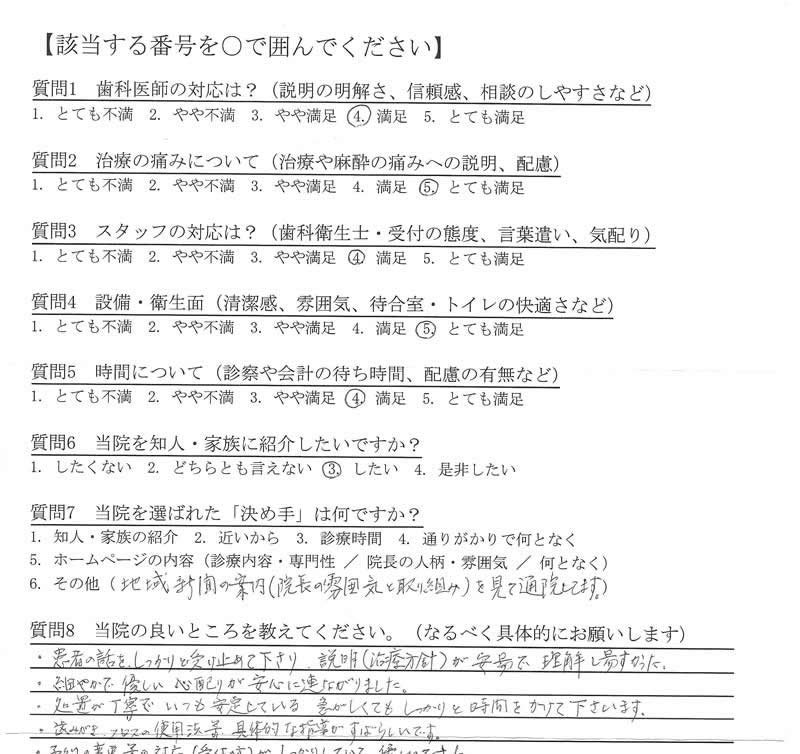 【該当する番号を○で囲んでください】
質問1 歯科医師の対応は？（説明の明解さ、信頼感、相談のしやすさなど）
1. とても不満 2. やや不満 3. やや満足 4. 満足 5. とても満足
質問2 治療の痛みについて（治療や麻酔の痛みへの説明、配慮）
1. とても不満 2. やや不満 3. やや満足 4. 満足 5. とても満足
質問3 スタッフの対応は？（歯科衛生士・受付の態度、言葉遣い、気配り）
1. とても不満 2. やや不満 3. やや満足 4. 満足 5. とても満足
質問4 設備・衛生面（清潔感、雰囲気、待合室・トイレの快適さなど）
1. とても不満 2. やや不満 3. やや満足 4. 満足 5. とても満足
質問5 時間について（診察や会計の待ち時間、配慮の有無など）
1. とても不満 2. やや不満 3. やや満足 4. 満足 5. とても満足
質問6 当院を知人・家族に紹介したいですか？
1. したくない 2. どちらとも言えない 3. したい 4. 是非したい
質問7 当院を選ばれた「決め手」は何ですか？
1. 知人・家族の紹介 2. 近いから 3. 診療時間 4. 通りがかりで何となく
5. ホームページの内容（診療内容・専門性 ／ 院長の人柄・雰囲気 ／ 何となく）
6. その他（地域新聞の案内（院長の雰囲気と取り組み）を見て通院してます。）
質問8 当院の良いところを教えてください。（なるべく具体的にお願いします）
・患者の話をしっかりと受け止めて下さり、説明（治療方針）が で 理解し易すかった。
・細やかで優しい 心配りが安心に連ながりました。
・処置が丁寧で いつも安定している しくてもしっかりと時間をかけて下さいます。
・歯みがき、フロスの使用法等 具体的な指導がすばらしいです。